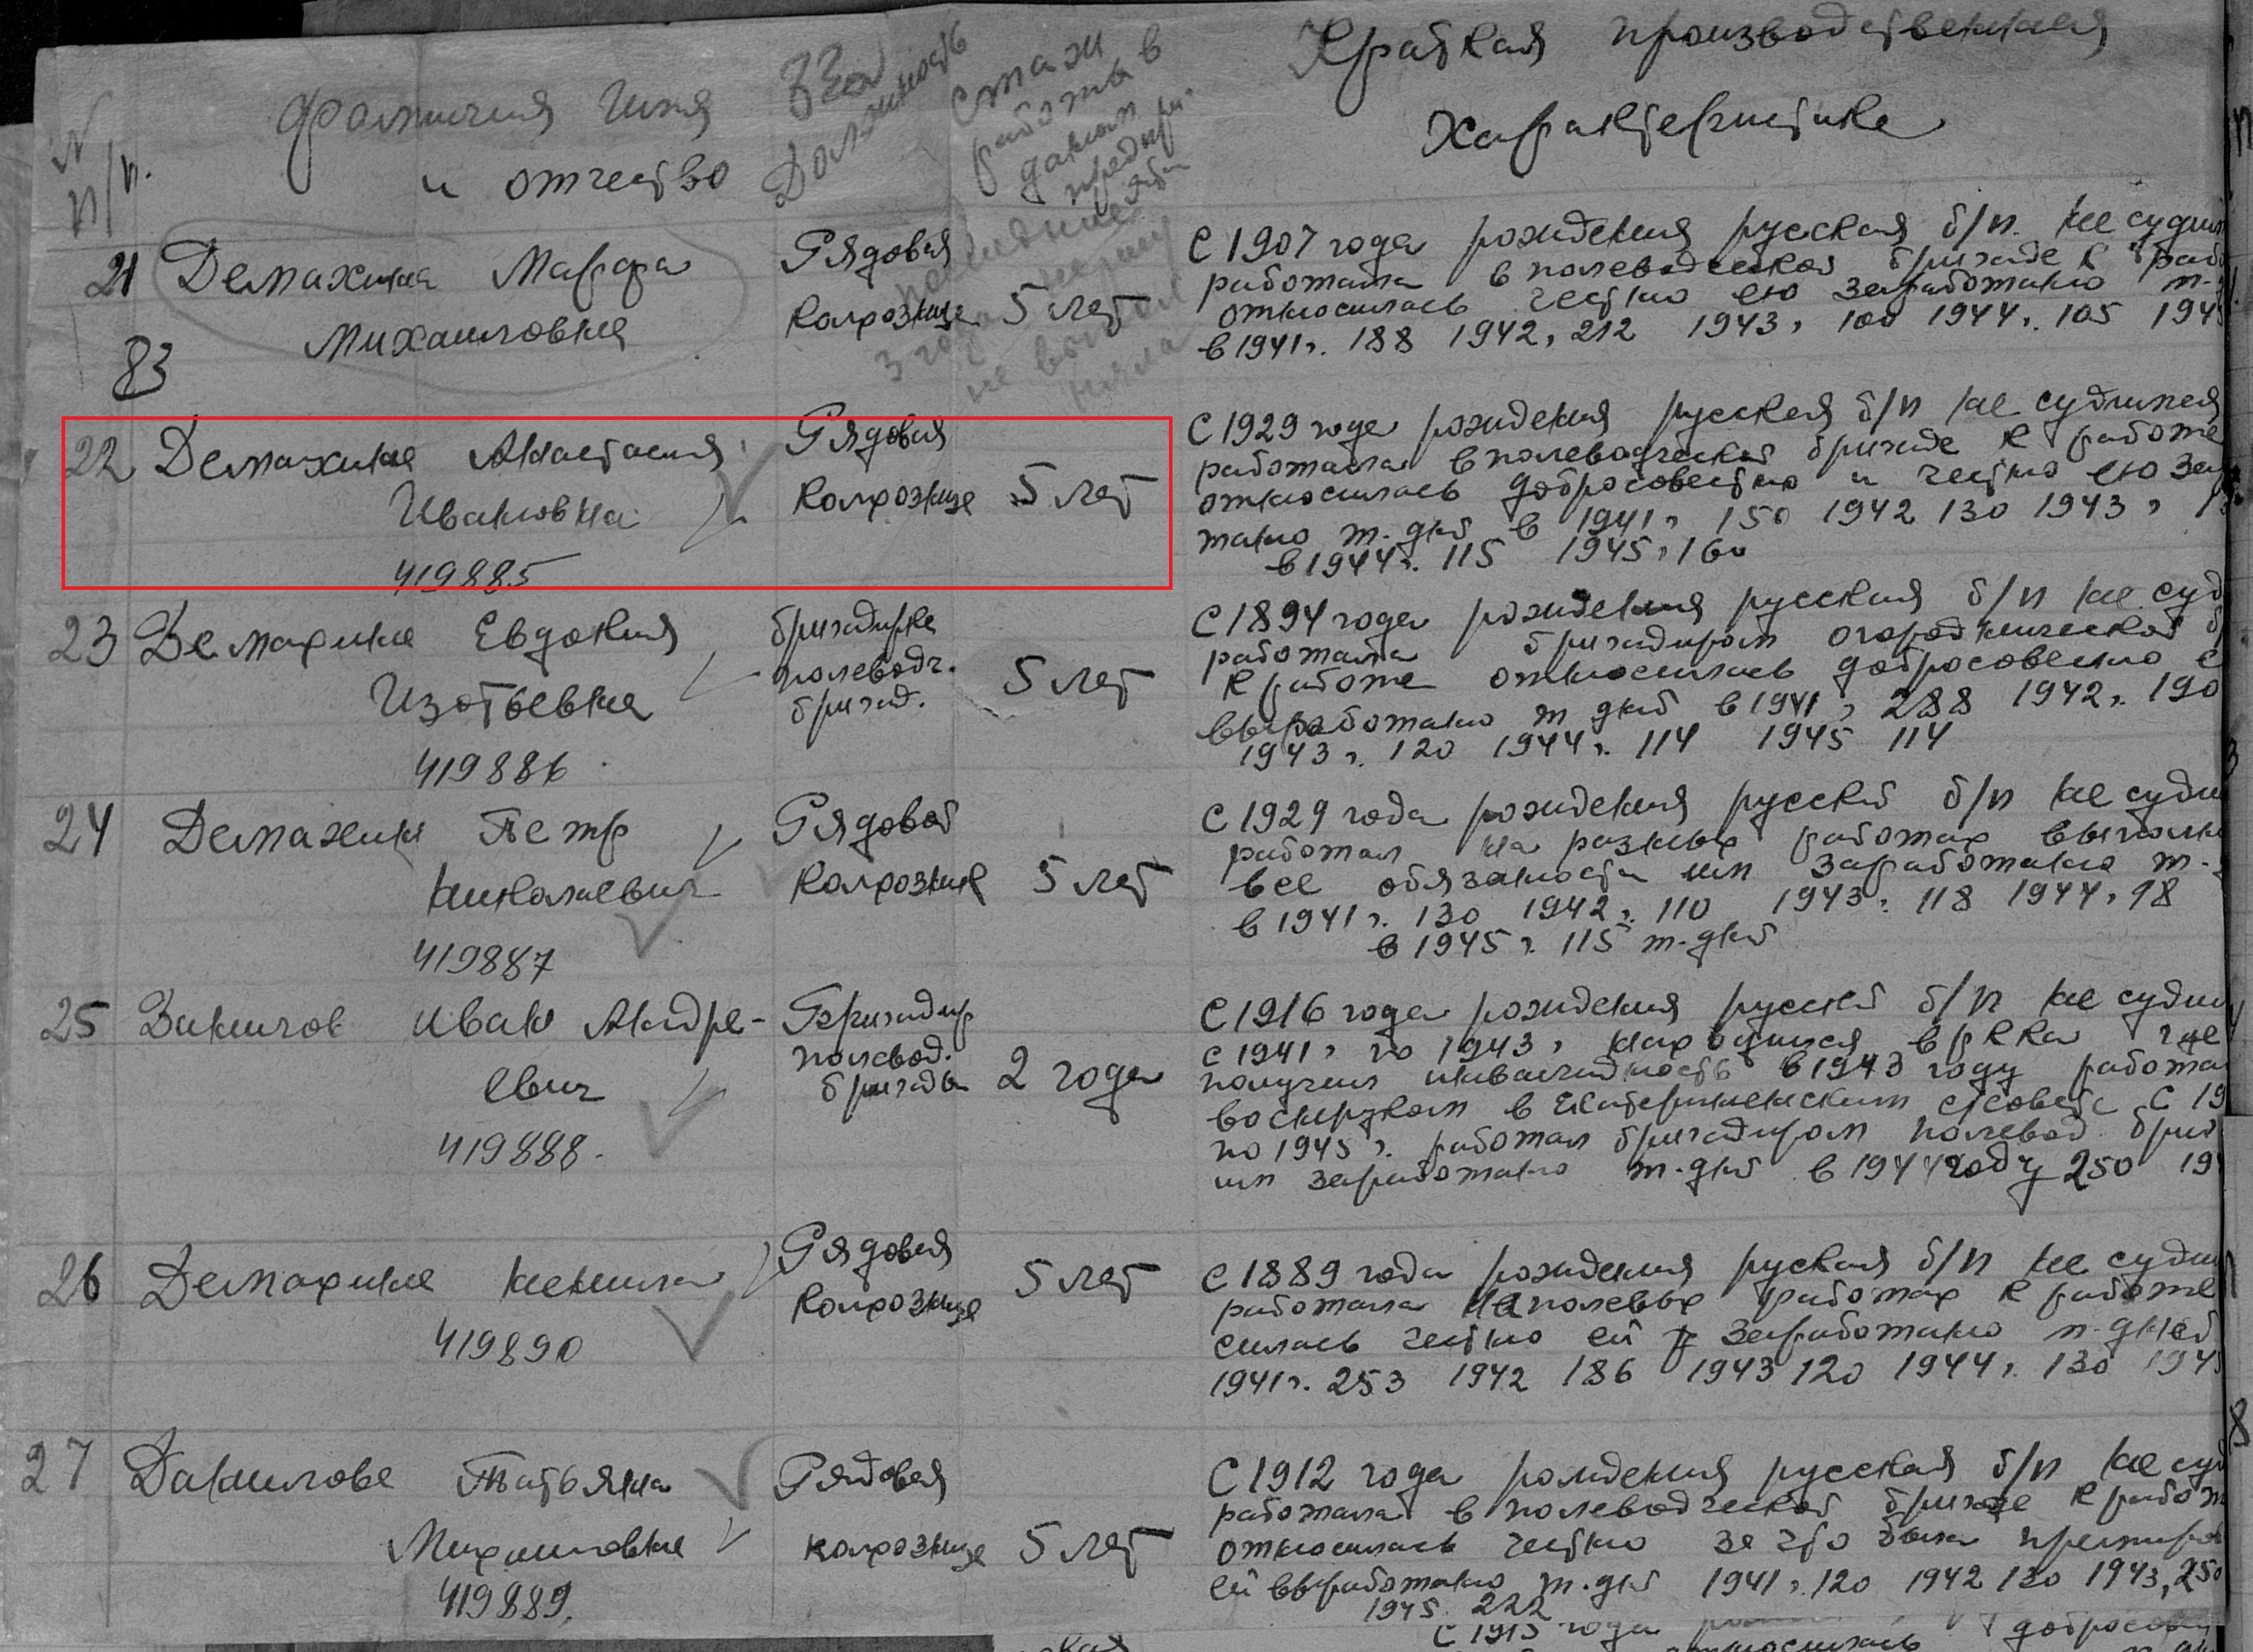 N п/п.
Фамилия Имя
и отчество
Должность
Стаж
работы в
данном
предпр.
Краткая производственная
Характеристика
21 Демахина Марфа
Михайловна
83
Рядовая
колхозница
5 лет
С 1907 года рождения русская б/п. не судим
работала в полеводческой бригаде к раб
относилась честно ею заработано т-
в 1941г. 188 1942г 212 1943г 100 1944г. 105 194
22 Демахина Анастасия
Ивановна
419885
Рядовая
колхозница
5 лет
С 1929 года рождения русская б/п не судимая
работала в полеводческой бригаде к работе
относилась добросовестно и честно ею за
тано т. дней в 1941г 150 1942 130 1943г
в 1944г. 115 1945г 160
23 Демахина Евдокия
Изотьевна
419886
бригадирка
полеводч.
бригад.
5 лет
С 1894 года рождения русская б/п не суд
работала бригадиром огороднической б
к работе относилась добросовесно
выработано т дней в 1941г 288 1942г. 190
1943г. 120 1944г. 114 1945 114
24 Демахин Петр
Николаевич
419887
Рядовой
колхозник
5 лет
С 1929 года рождения русский б/п не суди
работал на разных работах выполня
все обязаности им заработано т-
в 1941г. 130 1942г. 110 1943г. 118 1944г 98
в 1945г. 115 т-дней
25 Данилов Иван Андре-
евич
419888.
Бригадир
полевод.
бригады
2 года
С 1916 года рождения русский б/п не суди
с 1941г по 1943г находился в РККа где
получил инвалидность в 1943 году работа
военруком в Екатерининским с/совете С 19
по 1945г. работал бригадиром полевод. бриг
им заработано т-дней в 1944 году 250 19
26 Демахина Ненила
419890
Рядовая
колхозница
5 лет
С 1889 года рождения руская б/п не суди
работала на полевых работах к работе
силась честно ей заработано т-дней
1941г. 253 1942 186 1943 120 1944г. 130 194
27 Данилова Татьяна
Михаиловна
419889.
Рядовая
колхозница
5 лет
С 1912 года рождения русская б/п не суд
работала в полеводческой бригаде к работ
относилась честно за что была премиров
ей выработано т. дней 1941г. 120 1942 130 1943г 250
1945 222
С 1915 года
добросов